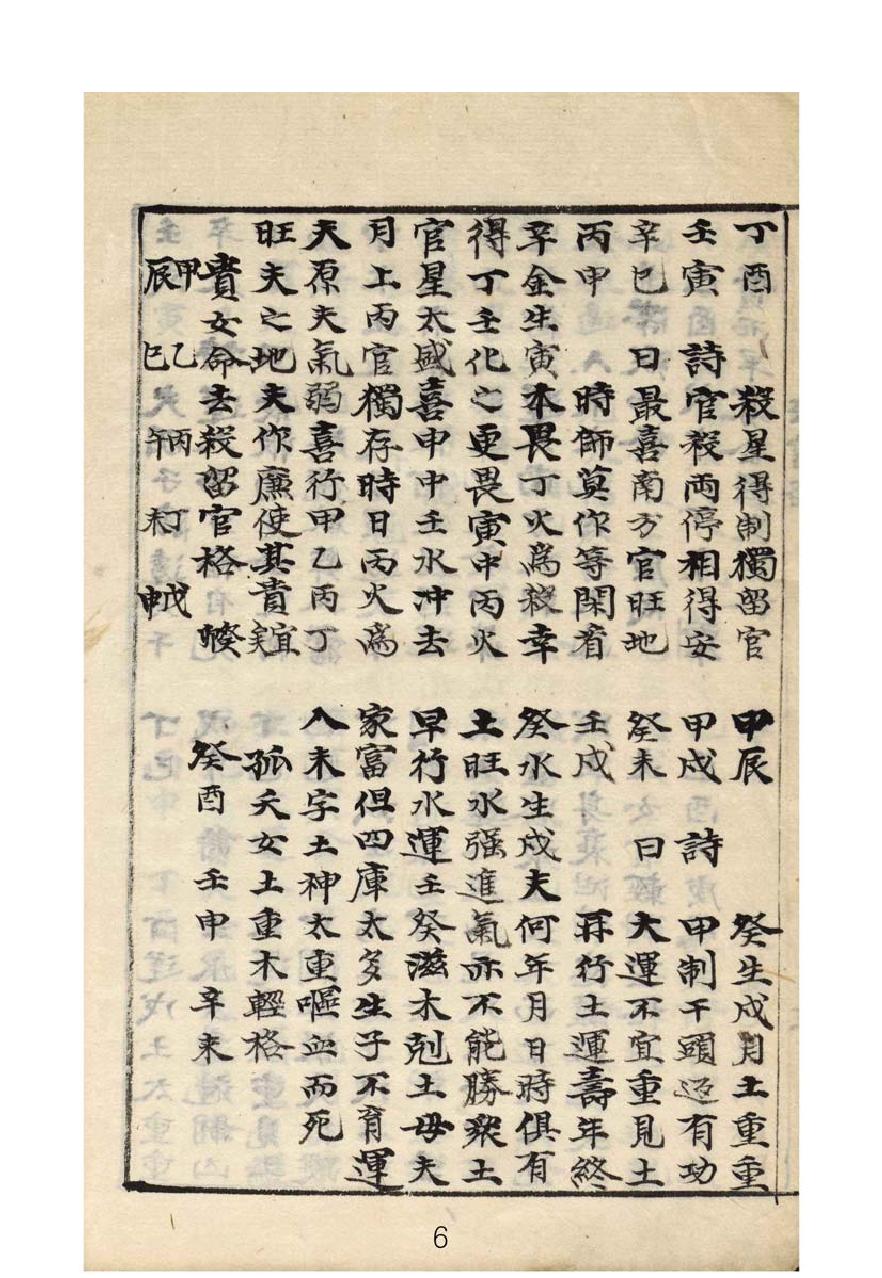 丁酉 殺星得制獨留官
壬寅 詩官殺両停相得安
辛巳 曰最喜南方官旺地
丙申 時師莫作等閑看
辛金生寅本畏丁火為殺幸
得丁壬化之更畏寅中丙火
官星太盛喜申中壬水冲去
月上丙官獨存時日丙火為
夫原夫氣弱喜行甲乙丙丁
旺夫之地夫作廉使其貴宜
貴女命去殺留官格
甲辰 乙巳 丙午 丁未 戊申
甲辰 癸生戌月土重重
甲戌 詩 甲制干頭迢有功
癸未 曰 大運不宜重見土
壬戌 再行土運壽年終
癸水生戌夫何年月日時俱有
土旺水强進氣亦不能勝衆土
早行水運壬癸滋木剋土母夫
家富但四庫太多生子不育運
入未字土神太重嘔血而死
孤夭女土重木輕格
癸酉 壬申 辛未
6